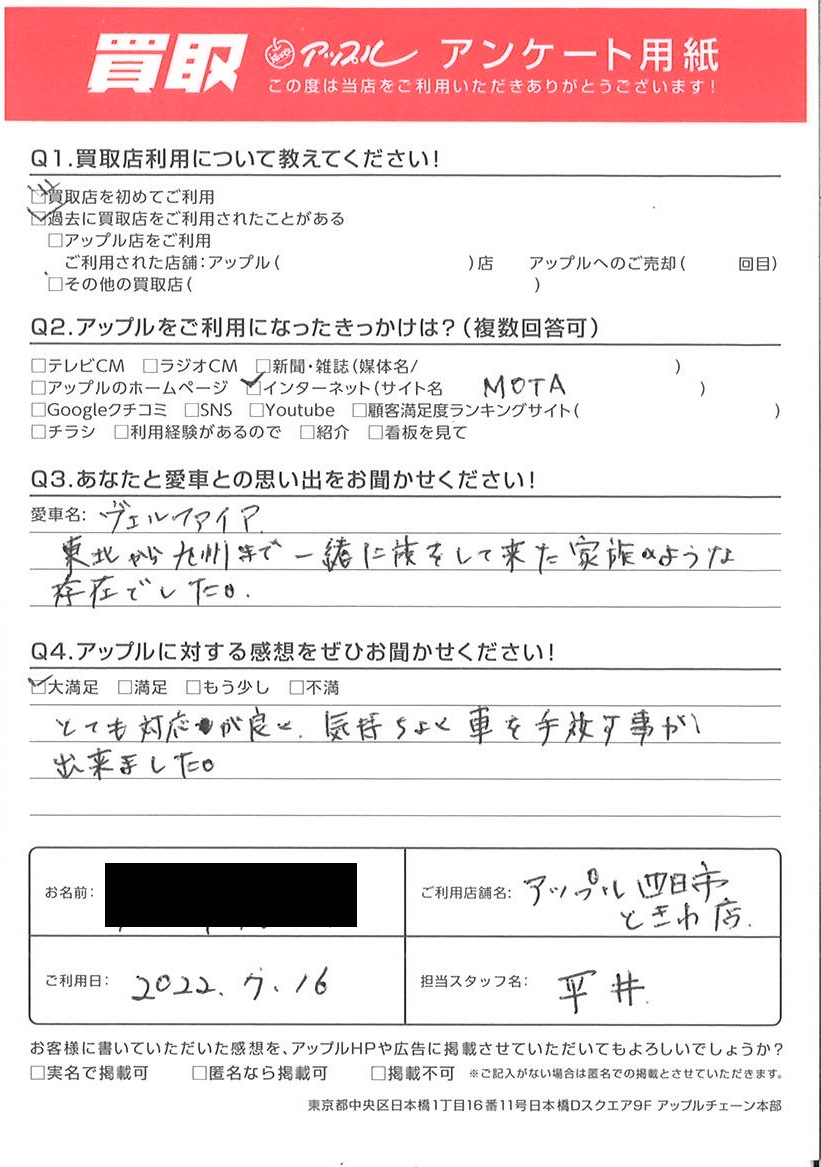 買取 アップル アンケート用紙
この度は当店をご利用いただきありがとうございます!
Q1.買取店利用について教えてください!
□買取店を初めてご利用
□過去に買取店をご利用されたことがある
□アップル店をご利用
ご利用された店舗:アップル( )店 アップルへのご売却( 回目)
□その他の買取店( )
Q2.アップルをご利用になったきっかけは?(複数回答可)
□テレビCM □ラジオCM □新聞・雑誌(媒体名/ )
□アップルのホームページ ☑インターネット(サイト名 MOTA )
□Googleクチコミ □SNS □Youtube □顧客満足度ランキングサイト( )
□チラシ □利用経験があるので □紹介 □看板を見て
Q3.あなたと愛車との思い出をお聞かせください!
愛車名: ヴェルファイア
東北から九州まで一緒に旅をして来た家族のような
存在でした。
Q4.アップルに対する感想をぜひお聞かせください!
☑大満足 □満足 □もう少し □不満
とても対応が良く、気持ちよく車を手放す事が
出来ました。
お名前:
ご利用店舗名: アップル四日市
ときわ店.
ご利用日: 2022.7.16
担当スタッフ名: 平井
お客様に書いていただいた感想を、アップルHPや広告に掲載させていただいてもよろしいでしょうか?
□実名で掲載可 □匿名なら掲載可 □掲載不可 ※ご記入がない場合は匿名での掲載とさせていただきます。
東京都中央区日本橋1丁目16番11号日本橋Dスクエア9F アップルチェーン本部